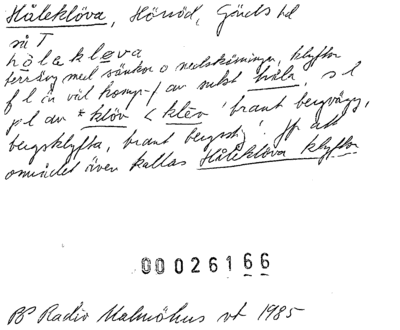 Håleklöva, Hönöd, Gärds hd
nå T
hòlaklø̀va
terräng med sänkor o nedskärningar, klyftor
f l är väl komp-f av subst håla, s l
pl av *klöv < klev 'brant bergvägg,
bergsklyfta, brant bergsstig'. Jf att
området även kallas Håleklöva klyftor
00026166
PP Radio Malmöhus vt 1985